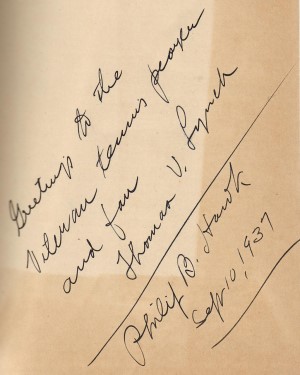 Greetings to the
Veteran tennis player
and fan
Thomas V. Lynch
Philip B. Hawk
Sept 10, 1937